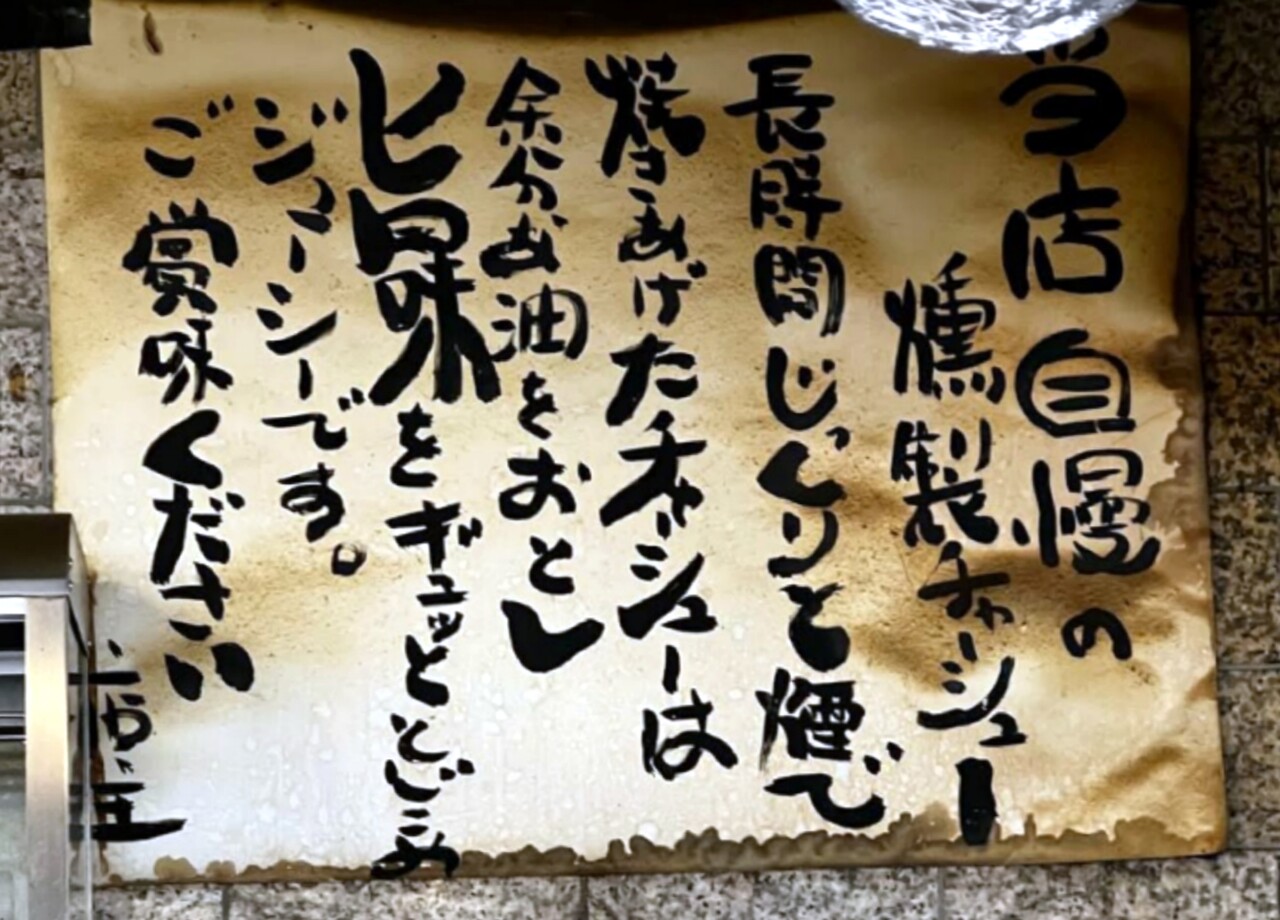 当店自慢の
燻製チャーシュー
長時間じっくりと煙で
焼きあげたチャーシューは
余分な油をおとし
旨味をギュッととじこめ
ジューシーです。
ご賞味ください